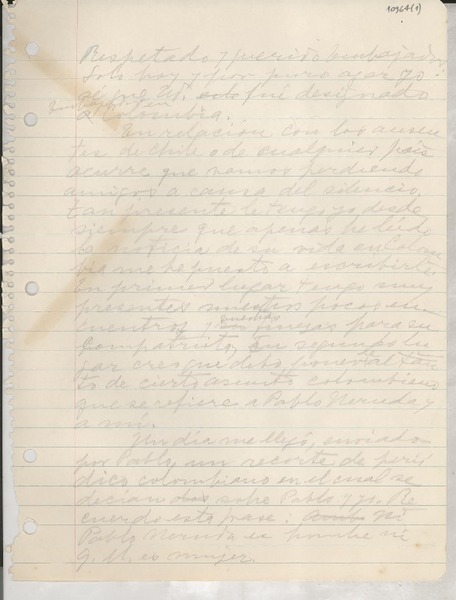 10964(1)
Respetado y querido Embajador:
Solo hoy y por puro azar yo
sé que Ud. fué designado
a Colombia.
En relación con los ausen-
tes de Chile o de cualquier país
ocurre que vamos perdiendo
amigos a causa del silencio.
Tan presente le tengo yo desde
siempre que apenas he leído
la noticia de su vida en Colom-
bia me he puesto a escribirle.
En primer lugar tengo muy
presentes nuestros pocos en-
cuentros y sus muchas para su
compatriota. En segundo lu-
gar creo que debo ponerle al tan-
to de cierto asunto colombiano
que se refiere a Pablo Neruda y
a mí.
Un día me llegó, enviado
por Pablo, un recorte de perió-
dico colombiano en el cual se
decían sobre Pablo y yo. Re-
cuerdo esta frase: Ni
Pablo Neruda es hombre ni
G. M. es mujer.